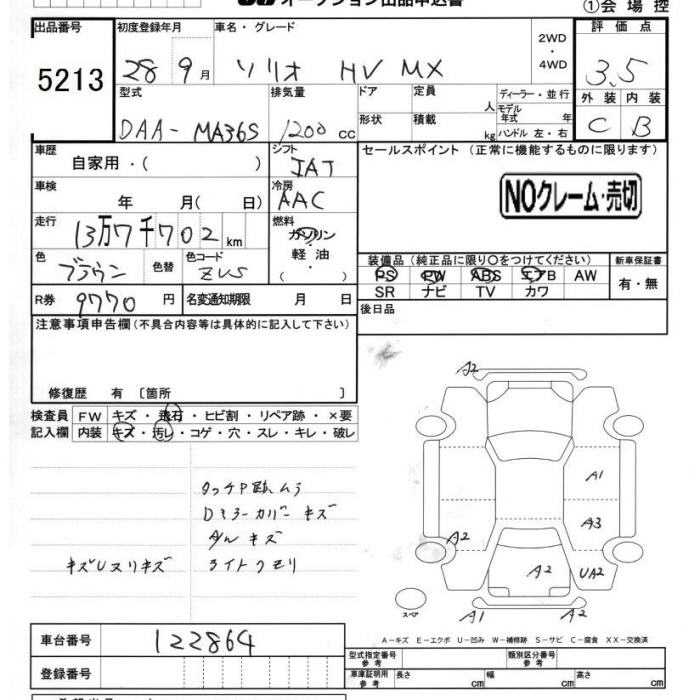 オークション出品申込書 ①会場控
出品番号 5213
初度登録年月 28 9月
車名・グレード ソリオ HV MX
2WD・4WD
評価点 3.5
外装 C 内装 B
型式 DAA-MA36S
排気量 1200 cc
ドア 定員 人
形状 積載 kg
ディーラー・並行
モデル年式 年式
ハンドル 左・右
車歴 自家用・( )
シフト IAT
車検 年 月( 日)
冷房 AAC
走行 13万7千702 km
燃料 ガソリン 軽油 ・( )
色 ブラウン 色替 色コード ZVS
R券 9770 円 名変通知期限 月 日
セールスポイント (正常に機能するものに限ります)
NOクレーム・売切
装備品 (純正品に限り○をつけてください) 新車保証書
PS PW ABS エアB AW 有・無
SR ナビ TV カワ
後日品
注意事項申告欄 (不具合内容等は具体的に記入して下さい)
修復歴 有 〔箇所 〕
検査員記入欄
FW キズ・飛石・ヒビ割・リペア跡・×要
内装 キズ・汚レ・コゲ・穴・スレ・キレ・破レ
タッチP跡ムラ
Dミラーカバーキズ
キズUスリキズ ライトクモリ
A2
A1
A3
A2
A2 UA2
A1 A2
スペア
A-キズ E-エクボ U-凹み W-補修跡 S-サビ C-腐食 XX-交換済
車台番号 122864
登録番号
型式指定番号 参考 類別区分番号 参考
車庫証明用 参考 長さ cm 幅 cm 高さ cm